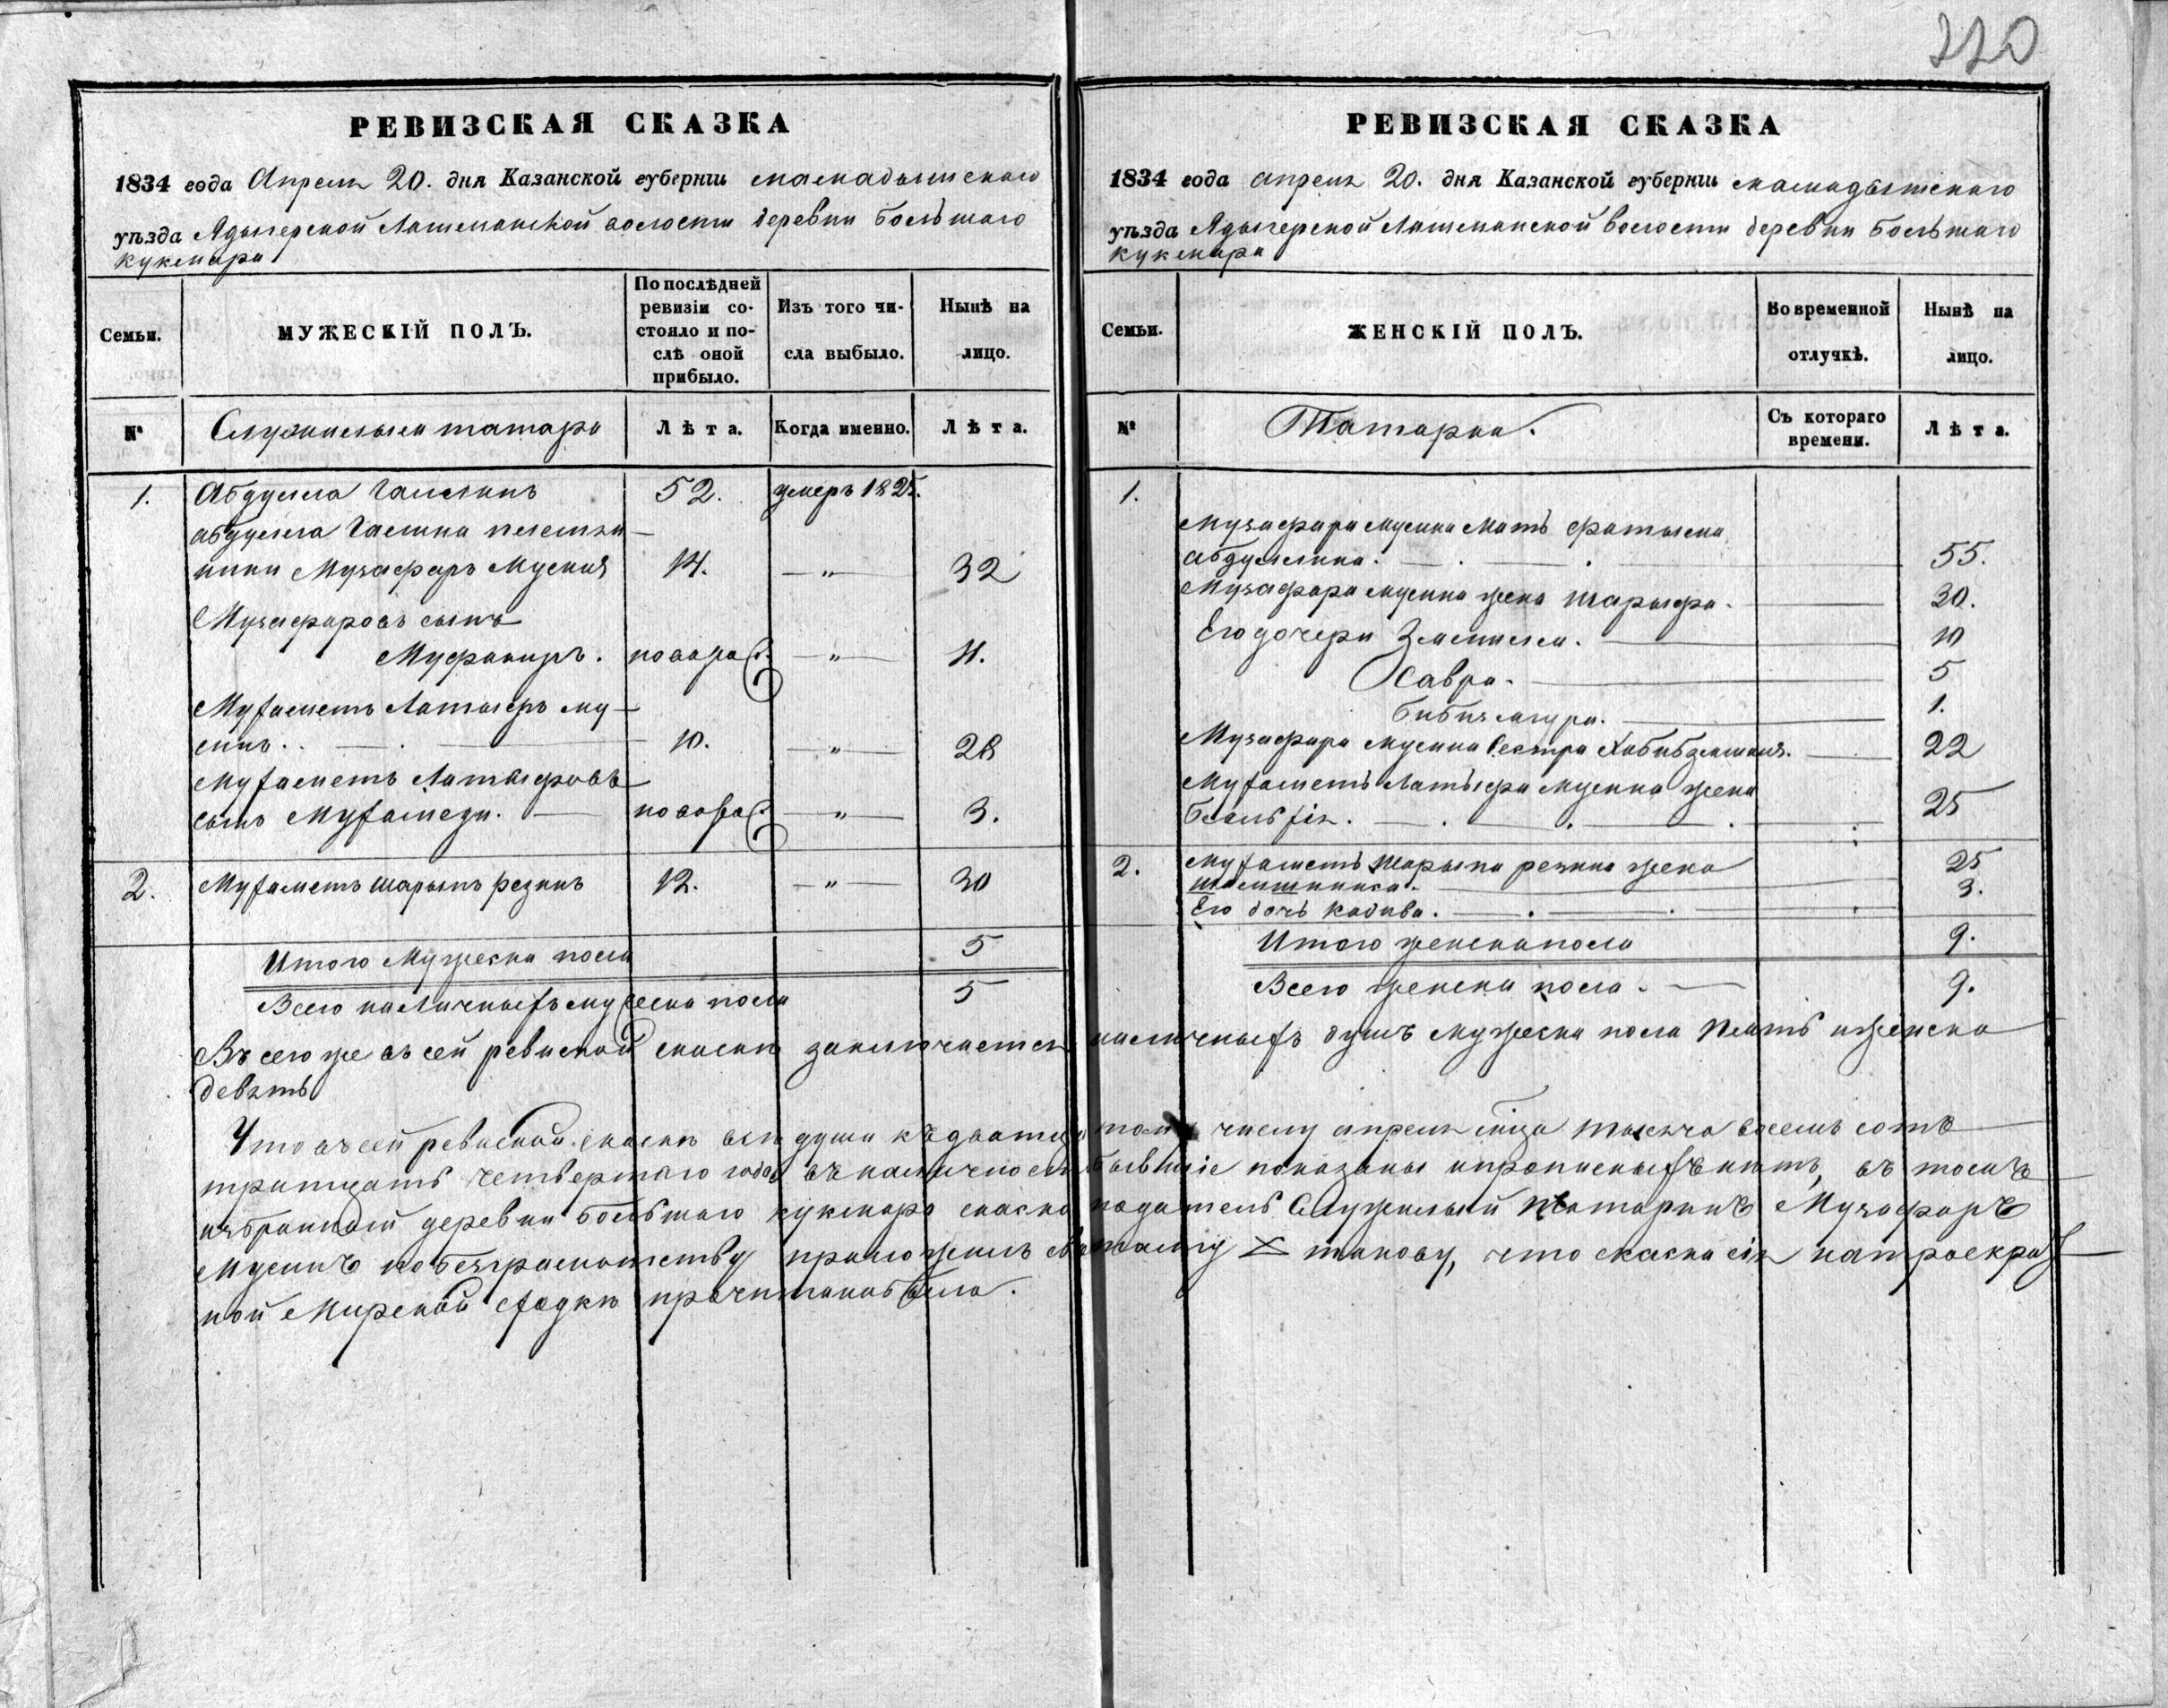 220
РЕВИЗСКАЯ СКАЗКА
1834 года Апреля 20. дня Казанской губерніи мамадышскаго
уѣзда Адыгерской Лашманской волости деревни большаго
кукмара
Семьи.
МУЖЕСКІЙ ПОЛЪ.
По послѣдней ревизіи состояло и послѣ оной прибыло.
Изъ того числа выбыло.
Нынѣ на лицо.
№
Служилыи татара
Лѣта.
Когда именно.
Лѣта.
1. Абдулла Галеинъ 52. умеръ 1825.
абдулла Галеина племян
ники Музафаръ Мусинъ 14. — „ — 32
Музафаровъ сынъ
Муфаниръ. новорож. — „ — 11.
Мухаметъ Латыфъ му
синъ. 10. — „ — 28
Мухаметъ Латыфовъ
сынъ Мухамези. новорож. — „ — 3.
2. Мухаметъ шарыпъ резинъ 12. — „ — 30
Итого Мужеска пола 5
Всего наличныхъ мужеска пола 5
РЕВИЗСКАЯ СКАЗКА
1834 года апреля 20. дня Казанской губерніи мамадышскаго
уѣзда Адыгерской Лашманской волости деревни большаго
кукмара
Семьи.
ЖЕНСКІЙ ПОЛЪ.
Во временной отлучкѣ.
Нынѣ на лицо.
№
Татарки.
Съ котораго времени.
Лѣта.
1.
Музафара мусина Мать фатыма
абдуллина. 55.
Музафара мусина жена шарыфа. 30.
Его дочери 10
Хавра. 5
бибизлгура. 1.
Музафара мусина Сестра Хабибземаля. 22
Мухаметъ Латыфа Мусина жена
25
2. Мухаметъ Шарыпа резина жена 25
Его дочь кадива. 3.
Итого женска пола 9.
Всего женска пола. 9.
Всего же въ сей ревиской скаски заключается наличныхъ душъ мужеска пола пять и женска
девять
Что въ сей ревиской скаски все души къ двацатому числу апреля мца тысяча восемь сотъ
тритцать четвертаго года въ наличности бывшіе показаны и прописныхъ нетъ, въ томъ
избранной деревни большаго кукмара скаско податель Служилый татаринъ Музафаръ
Мусинъ по безграмотству приложилъ свою тамгу X такову, что скаска сія на троекрат
ной Мирской сходки прочитана была.